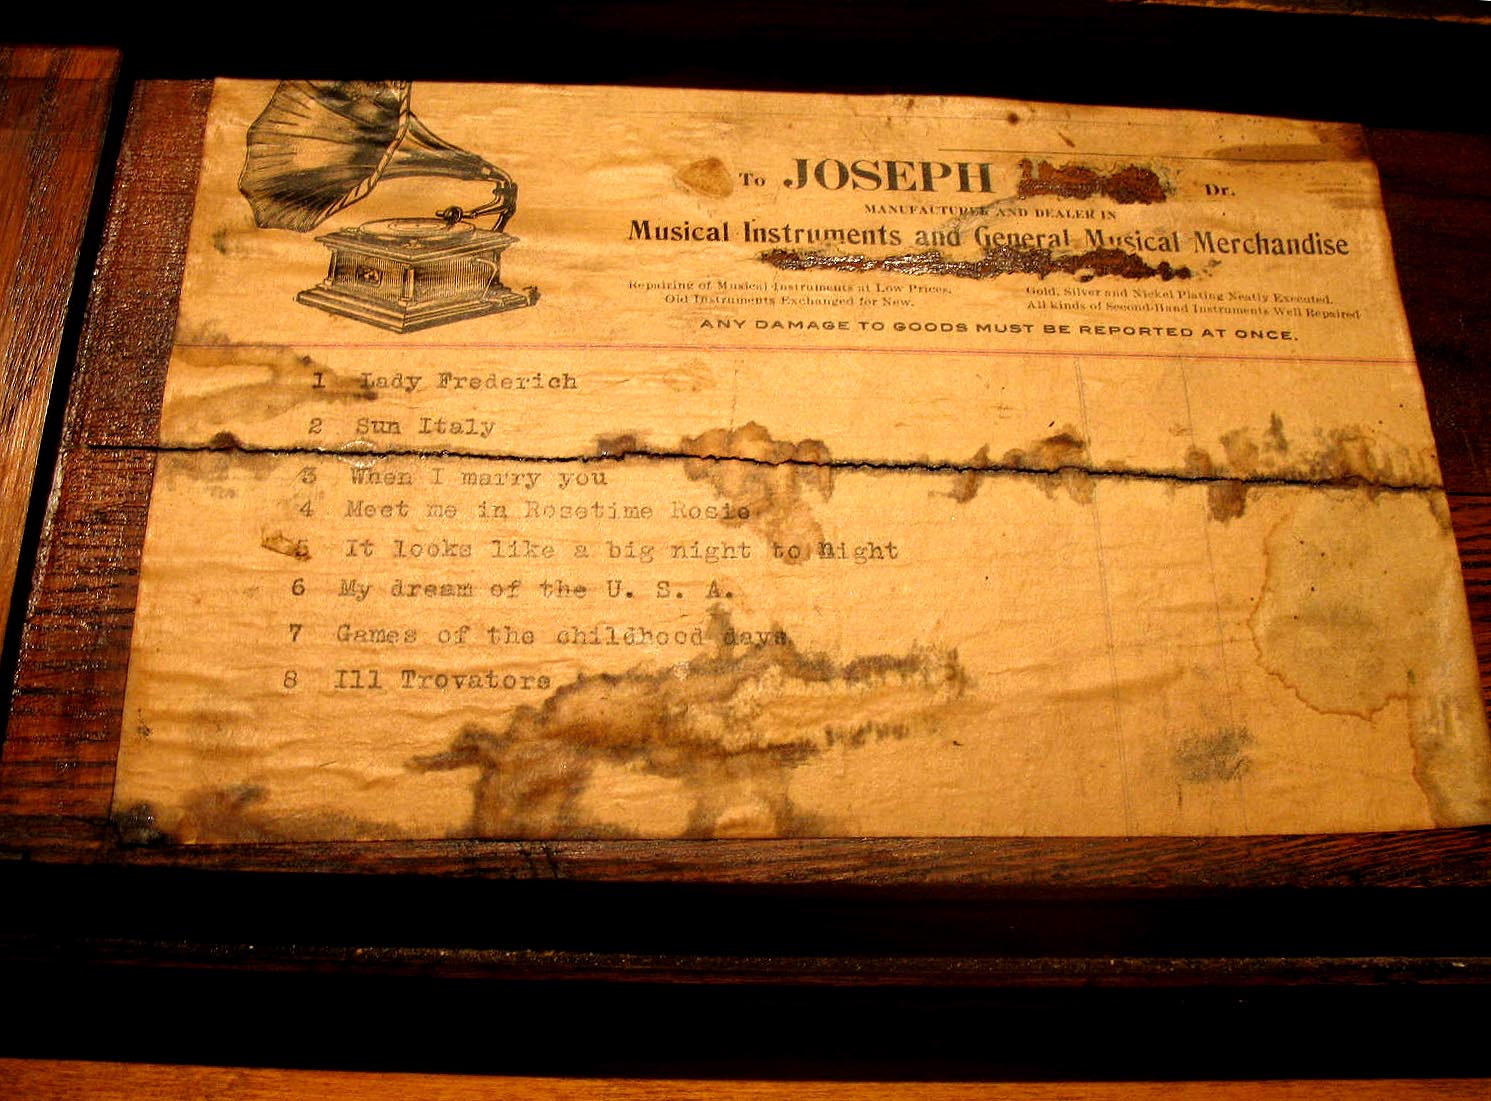 To JOSEPH Dr.
MANUFACTURER AND DEALER IN
Musical Instruments and General Musical Merchandise
Repairing of Musical Instruments at Low Prices.
Old Instruments Exchanged for New.
Gold, Silver and Nickel Plating Neatly Executed.
All kinds of Second-Hand Instruments Well Repaired
ANY DAMAGE TO GOODS MUST BE REPORTED AT ONCE.
1 Lady Frederich
2 Sun Italy
3 When I marry you
4 Meet me in Rosetime Rosie
5 It looks like a big night to night
6 My dream of the U. S. A.
7 Games of the childhood days
8 Ill Trovatore